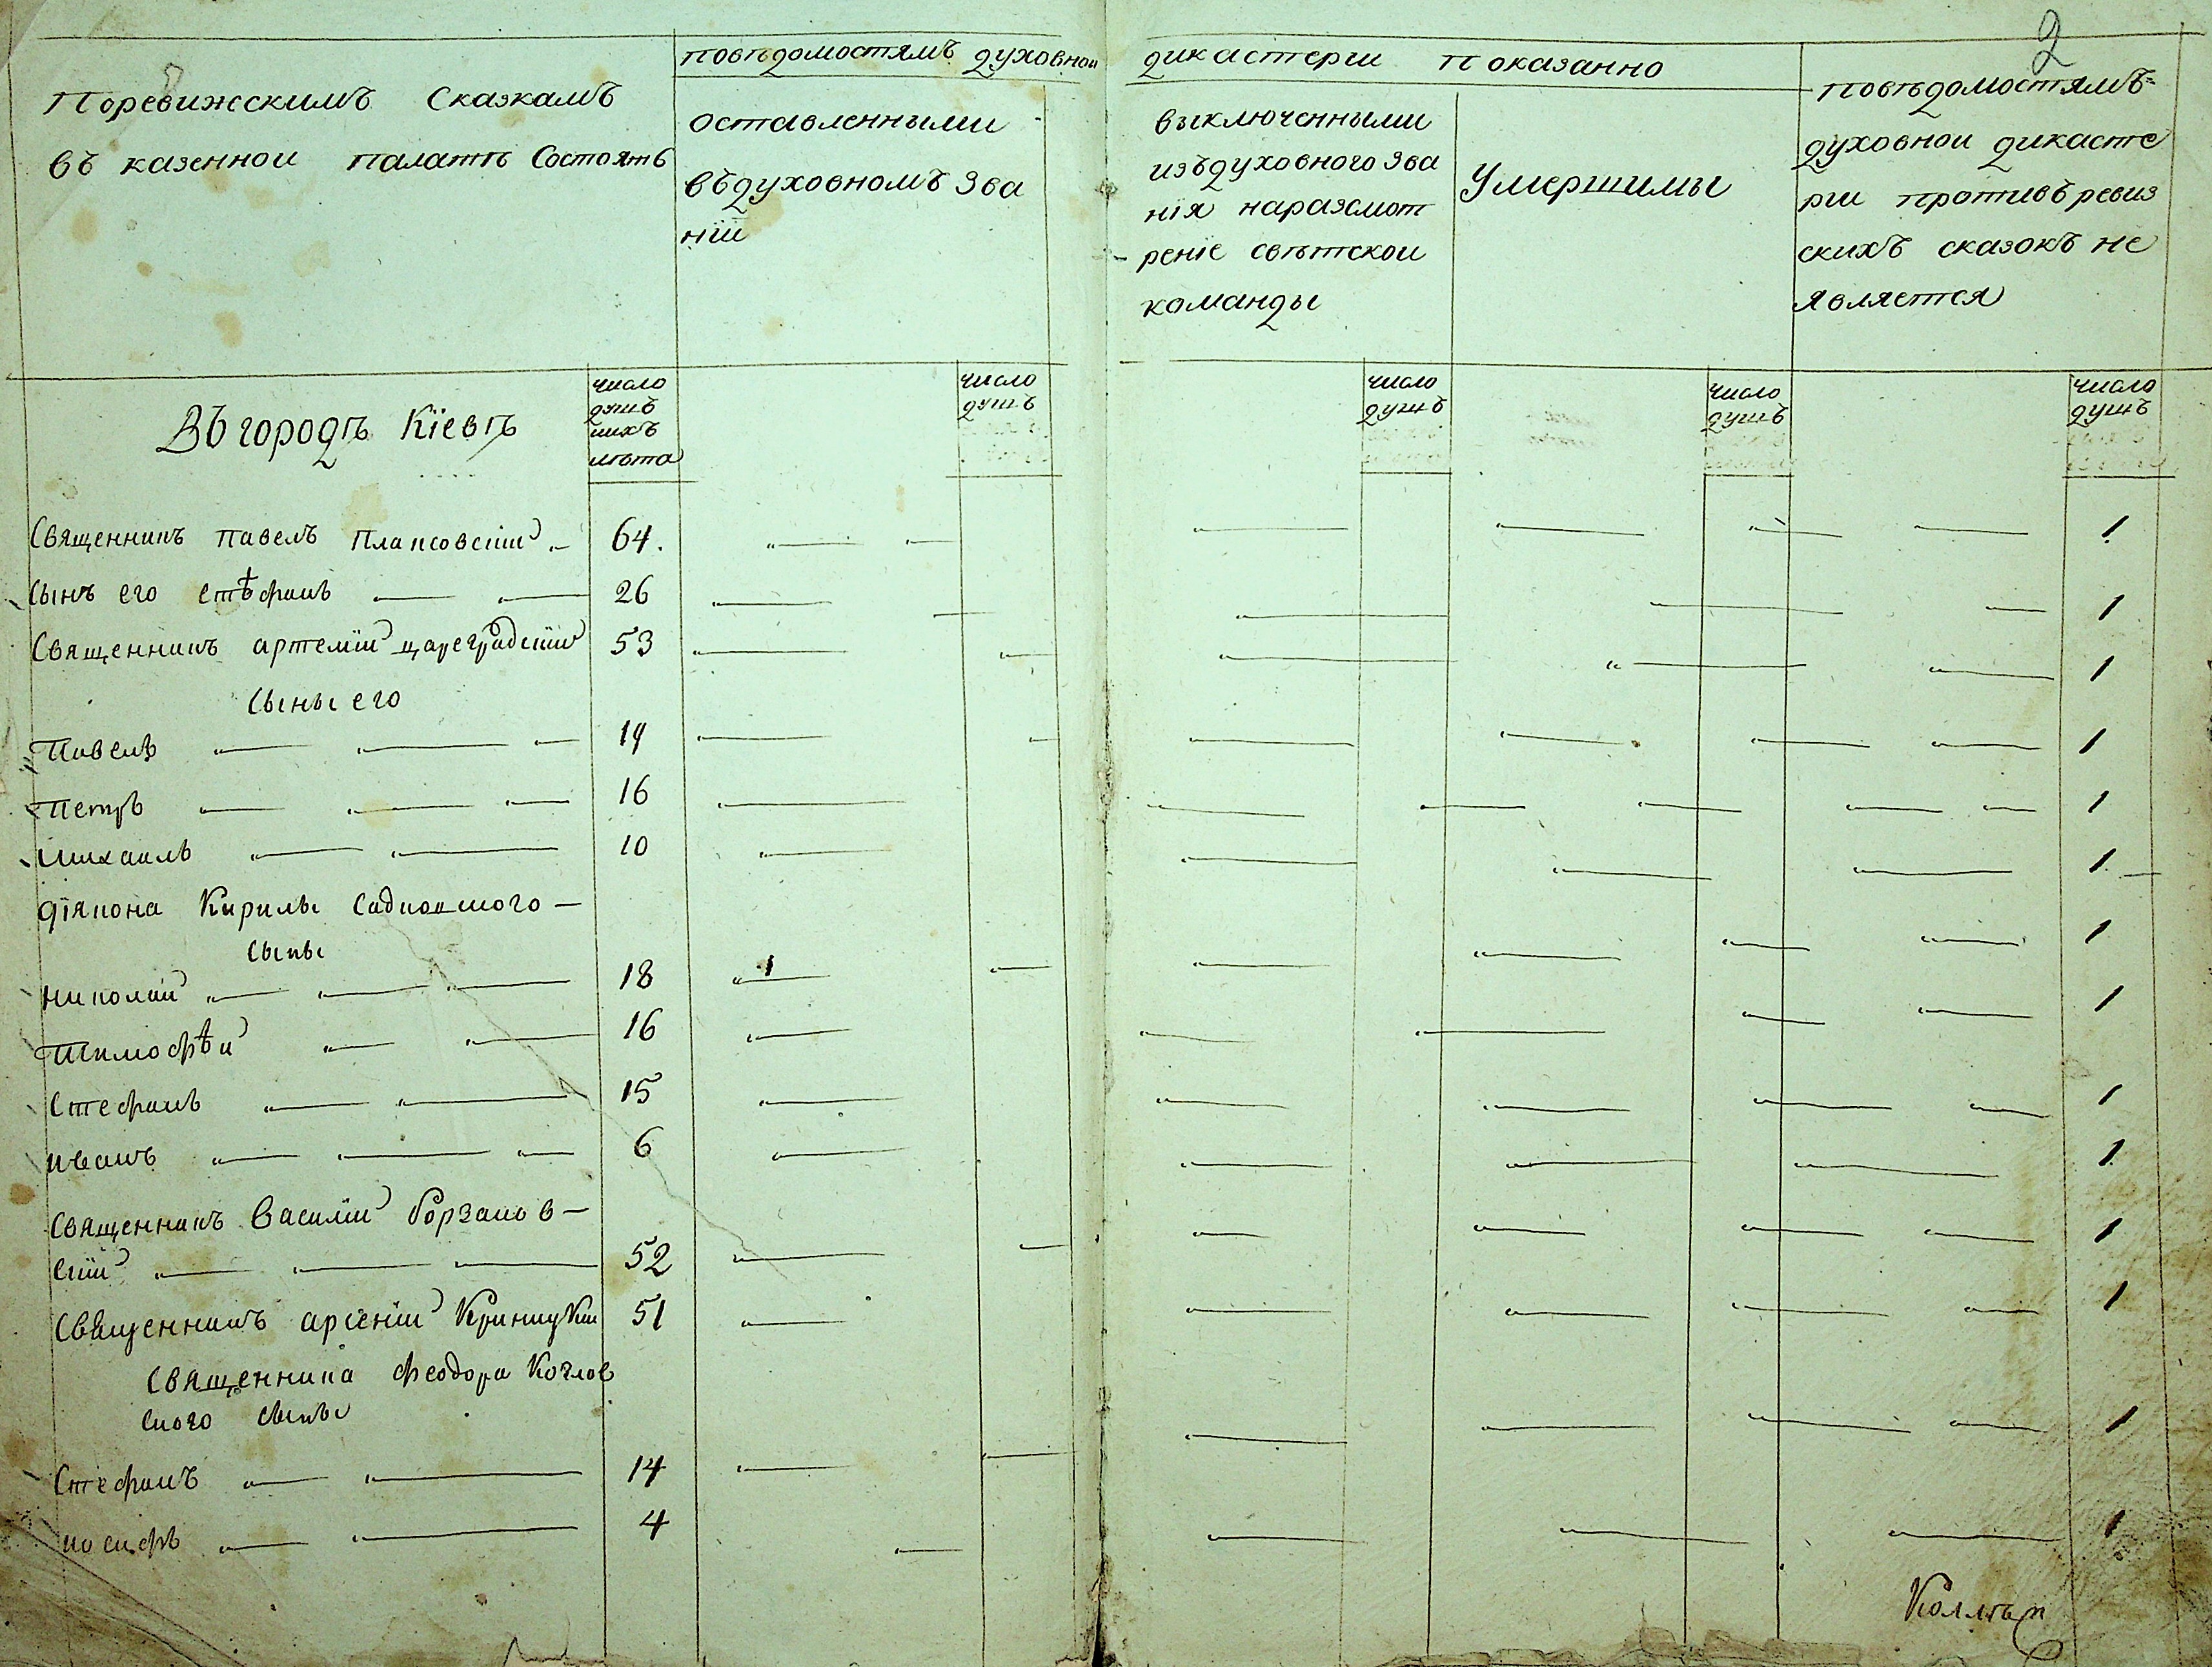 2
Поревижскимъ Сказкамъ
въ казенной палатѣ Состоятъ
повѣдомостямъ духовной
дикастерии показанно
оставленными
въдуховномъ зва
нїи
выключенными
изъдуховного зва
нїя наразсмот
ренїе свѣтской
команды
Умершимы
повѣдомостямъ
духовной дикасте
рии противъ ревиз
скихъ сказокъ не
является
Въ городѣ Кїевѣ
число
душъ
ихъ
лѣта
число
душъ
число
душъ
число
душъ
число
душъ
Священникъ павелъ 64. 1
Сынъ его стѣфанъ 26 1
Священникъ артемїй цареградскїй 53 1
Сыны его
Павелъ 19 1
Петръ 16 1
Михаилъ 10 1
дїякона Кирилы
сыны 1
николай 18 1
Тимофѣй 16 1
Стефанъ 15 1
иванъ 6 1
Священникъ Василїй Борзаков
скїй 52 1
Священникъ арсенїй Криницкїй 51 1
Священника феодора Козлов
ского сыны 1
Стефанъ 14
иосифъ 4 1